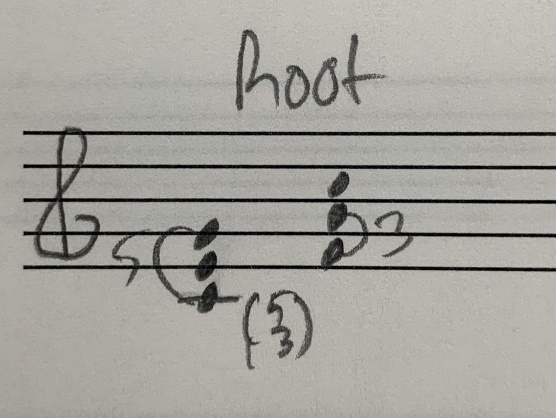 Root
5
3
(5
3)